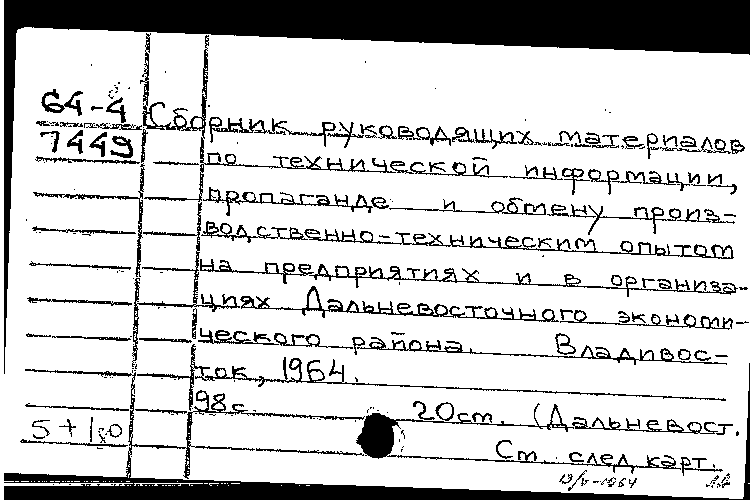 64-4 Сборник руководящих материалов
7449 по технической информации,
пропаганде и обмену произ-
водственно-техническим опытом
на предприятиях и в организа-
циях Дальневосточного экономи-
ческого района. Владивос-
ток, 1964.
98с. 20см. (Дальневост.
5+180
См. след. карт.